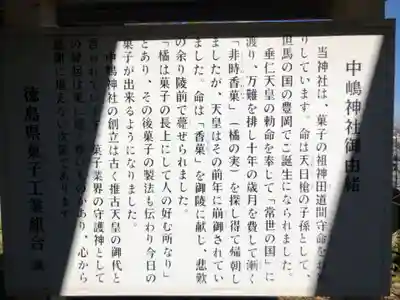 中嶋神社御由緒
当神社は、菓子の祖神田道間守命をお
りしています。命は天日槍の子孫として、
但馬の国の豊岡でご誕生になられました。
垂仁天皇の勅命を奉して「常世の国」に
渡り、万難を排し十年の歳月を費して漸く
「非時香菓」(橘の実)を探し得て帰朝し
ましたが、天皇はその前年に崩御されてい
ました。命は「香菓」を御陵に献じ、悲歎
の余り陵前で薨ぜられました。
「橘は菓子の長上にして人の好む所なり」
とあり、その後菓子の製法も伝わり今日の
菓子が出来るようになりました。
中嶋神社の創立は古く推古天皇の御代と
菓子業界の守護神として
あり、心から
感謝に堪えない次第であります
徳島県菓子工業組合